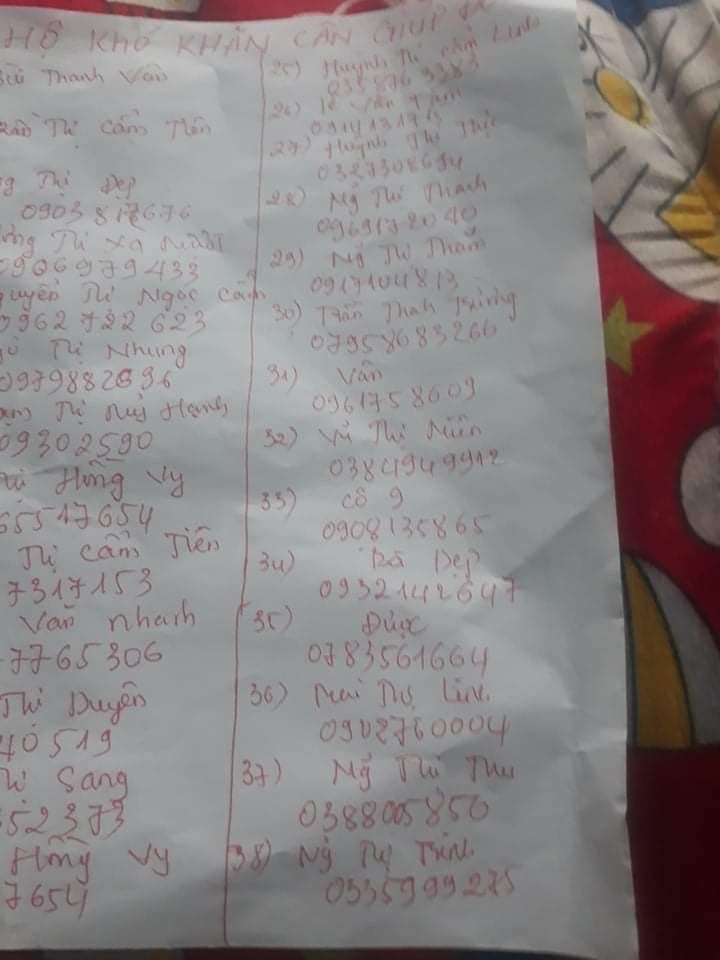 HỘ KHÓ KHĂN CẦN GIÚP
Thanh Vân
Thị Cẩm Tiên
Thị Đẹp
0903817676
Thị Xa
0906979433
Nguyễn Thị Ngọc Cẩm
0962722623
Thị Nhung
0979882696
Thị Mỹ Hạnh
09302590
Hồng Vy
65517654
Thị Cẩm Tiên
7317153
Văn nhanh
7765306
Thị Duyên
40519
Thị Sang
352373
Hồng Vy
7654
25) Huỳnh Thị Cẩm Linh
26) Lê Văn Tám
27) Huỳnh Thị
0327308694
28) Ng̉ Thị Thanh
0969172040
29) Ng̉ Thị Thắm
0917104813
30) Trần Thanh
07958683266
31) Vân
0961758609
32) Vũ Thị
0384949912
33) cô 9
0908135865
34) Bà Đẹp
0932142647
35) Được
0783561664
36) Mai Thị Linh
0902760004
37) Ng̉ Thị Thu
0388005850
38) Ng̉ Thị Trinh
0335999275